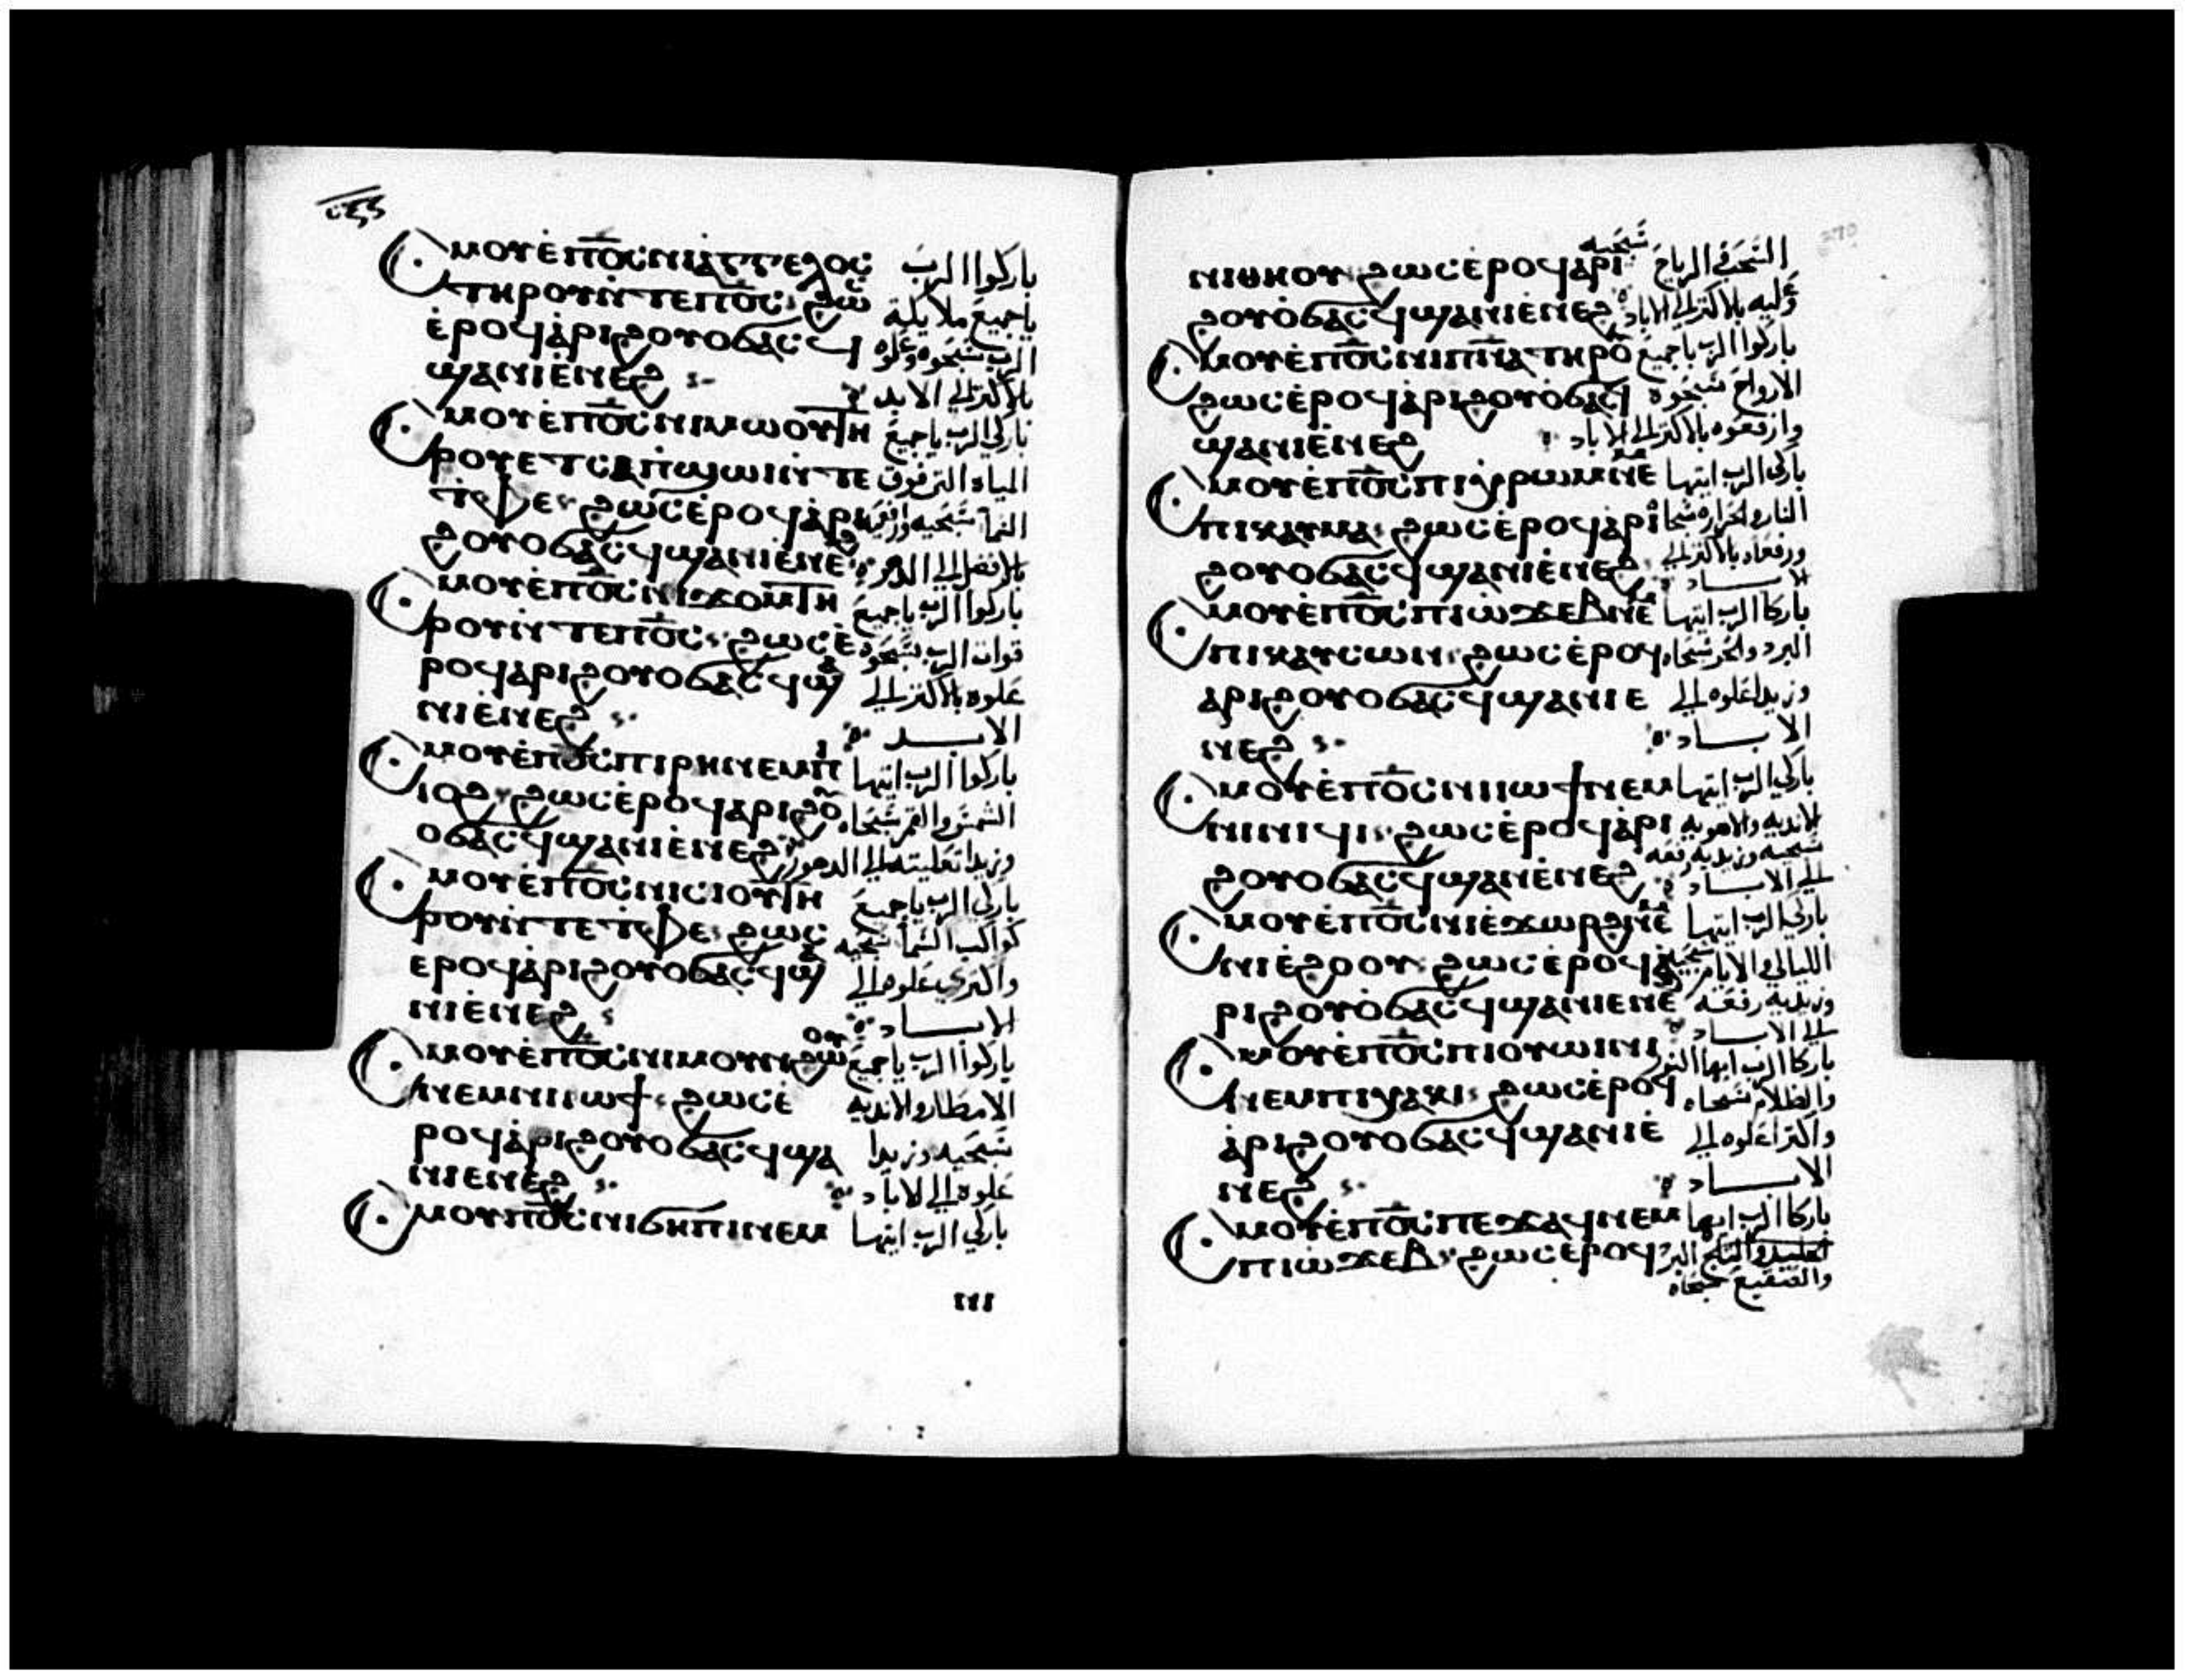 Ⲥⲙⲟⲩⲉ̀ⲡⲟ̅ⲥ̅ⲛⲓⲁⲅⲅⲉⲗⲟⲥ باركوا الرب
ⲧⲏⲣⲟⲩⲛ̀ⲧⲉⲡⲟ̅ⲥ̅ ϩⲱⲥ ياجميع ملايكة
ⲉ̀ⲣⲟϥⲁ̀ⲣⲓϩⲟⲩⲟϭⲁⲥϥ الرب سبحوه وعلوه
ϣⲁⲛⲓⲉ̀ⲛⲉϩ بالاكثر الي الابد
Ⲥⲙⲟⲩⲉ̀ⲡⲟ̅ⲥ̅ⲛⲓⲙⲱⲟⲩⲧⲏ باركي الرب ياجميع
ⲣⲟⲩⲉⲧⲥⲁⲡ̀ϣⲱⲓⲛ̀ⲧⲉ المياه التي فوق
ⲧ̀ⲫⲉ ϩⲱⲥⲉ̀ⲣⲟϥⲁ̀ⲣⲓ السما سبحيه
ϩⲟⲩⲟϭⲁⲥϥϣⲁⲛⲓⲉ̀ⲛⲉϩ
Ⲥⲙⲟⲩⲉ̀ⲡⲟ̅ⲥ̅ⲛⲓϫⲟⲙⲧⲏ باركوا الرب ياجميع
ⲣⲟⲩⲛ̀ⲧⲉⲡⲟ̅ⲥ̅ ϩⲱⲥⲉ̀ قوات الرب سبحوه
ⲣⲟϥⲁⲣⲓϩⲟⲩⲟϭⲁⲥϥϣⲁ علوه بالاكثر الي
ⲛⲓⲉ̀ⲛⲉϩ الابد
Ⲥⲙⲟⲩⲉ̀ⲡⲟ̅ⲥ̅ⲡⲓⲣⲏⲛⲉⲙⲡⲓ باركوا الرب ايتها
ⲓⲟϩ ϩⲱⲥⲉ̀ⲣⲟϥⲁⲣⲓϩⲟⲩ الشمس والقمر سبحاه
ⲟϭⲁⲥϥϣⲁⲛⲓⲉ̀ⲛⲉϩ وزيدا تعليته الي الدهور
Ⲥⲙⲟⲩⲉ̀ⲡⲟ̅ⲥ̅ⲛⲓⲥⲓⲟⲩⲧⲏ باركي الرب ياجميع
ⲣⲟⲩⲛ̀ⲧⲉⲧ̀ⲫⲉ ϩⲱⲥ كواكب السما سبحيه
ⲉⲣⲟϥⲁ̀ⲣⲓϩⲟⲩⲟϭⲁⲥϥϣⲁ واكثري علوه الي
ⲛⲓⲉ̀ⲛⲉϩ الاباد
Ⲥⲙⲟⲩⲉ̀ⲡⲟ̅ⲥ̅ⲛⲓⲙⲟⲩⲛϩⲱⲟⲩ باركوا الرب ياجميع
ⲛⲉⲙⲛⲓⲓⲱϯ ϩⲱⲥⲉ̀ الامطار والاندية
ⲣⲟϥⲁ̀ⲣⲓϩⲟⲩⲟϭⲁⲥϥϣⲁ سبحيه وزيدا
ⲛⲓⲉⲛⲉϩ علوه الي الاباد
Ⲥⲙⲟⲩⲡⲟ̅ⲥ̅ⲛⲓϭⲏⲡⲓⲛⲉⲙ باركي الرب ايتها
ⲛⲓ
ⲛⲓⲑⲏⲟⲩ ϩⲱⲥⲉ̀ⲣⲟϥⲁ̀ⲣⲓ السحب والرياح سبحيه
ϩⲟⲩⲟ̀ϭⲁⲥϥϣⲁⲛⲓⲉ̀ⲛⲉϩ وعليه بالاكثر الي الاباد
Ⲥⲙⲟⲩⲉ̀ⲡⲟ̅ⲥ̅ⲛⲓⲡ̅ⲛ̅ⲁ̅ⲧⲏⲣⲟⲩ باركوا الرب ياجميع
ϩⲱⲥⲉ̀ⲣⲟϥⲁ̀ⲣⲓϩⲟⲩⲟ̀ϭⲁⲥϥ الارواح سبحوه
ϣⲁⲛⲓⲉ̀ⲛⲉϩ وارفعوه بالاكثر الي الاباد
Ⲥⲙⲟⲩⲉ̀ⲡⲟ̅ⲥ̅ⲡⲓⲭⲣⲱⲙⲛⲉⲙ باركي الرب ايتها
ⲡⲓⲕⲁⲩⲙⲁ ϩⲱⲥⲉ̀ⲣⲟϥⲁ̀ⲣⲓ النار والحرارة سبحاه
ϩⲟⲩⲟϭⲁⲥϥϣⲁⲛⲓⲉ̀ⲛⲉϩ ورفعاه بالاكثر الي
الاباد
Ⲥⲙⲟⲩⲉ̀ⲡⲟ̅ⲥ̅ⲡⲓⲱ̀ϫⲉⲃⲛⲉⲙ باركا الرب ايتها
ⲡⲓⲕⲁⲩⲥⲱⲛ ϩⲱⲥⲉ̀ⲣⲟϥ البرد والحر سبحاه
ⲁⲣⲓϩⲟⲩⲟϭⲁⲥϥϣⲁⲛⲓⲉ وزيدا علوه الي
ⲛⲉϩ الاباد
Ⲥⲙⲟⲩⲉ̀ⲡⲟ̅ⲥ̅ⲛⲓⲓⲱϯⲛⲉⲙ باركي الرب ايتها
ⲛⲓⲛⲓϥⲓ ϩⲱⲥⲉ̀ⲣⲟϥⲁ̀ⲣⲓ الاندية والاهوية
ϩⲟⲩⲟϭⲁⲥϥϣⲁⲛⲉ̀ⲛⲉϩ سبحيه وزيديه رفعه
الي الاباد
Ⲥⲙⲟⲩⲉ̀ⲡⲟ̅ⲥ̅ⲛⲓⲉ̀ϫⲱⲣϩⲛⲉⲙ باركي الرب ايتها
ⲛⲓⲉ̀ϩⲟⲟⲩ ϩⲱⲥⲉ̀ⲣⲟϥⲁ̀ الليالي والايام سبحيه
ⲣⲓϩⲟⲩⲟ̀ϭⲁⲥϥϣⲁⲛⲓⲉⲛⲉϩ وزيديه رفعه
الي الاباد
Ⲥⲙⲟⲩⲉ̀ⲡⲟ̅ⲥ̅ⲡⲓⲟⲩⲱⲓⲛⲓ باركا الرب ايها النور
ⲛⲉⲙⲡⲓⲭⲁⲕⲓ ϩⲱⲥⲉ̀ⲣⲟϥ والظلام سبحاه
ⲁ̀ⲣⲓϩⲟⲩⲟϭⲁⲥϥϣⲁⲛⲓⲉ̀ واكثرا علوه الي
ⲛⲉϩ الاباد
Ⲥⲙⲟⲩⲉ̀ⲡⲟ̅ⲥ̅ⲡⲉϫⲁϥⲛⲉⲙ باركا الرب ايها
ⲡⲓⲱ̀ϫⲉⲃ ϩⲱⲥⲉ̀ⲣⲟϥ البرد
والصقيع سبحاه